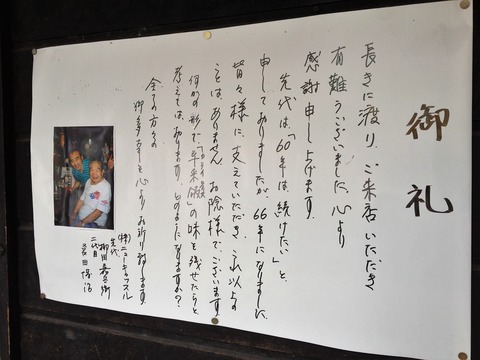 御礼
長きに渡り、ご来店いただき
有難うございました。心より
感謝申し上げます。
先代は、「60年は続けたい」と、
申しておりましたが、66年になりました。
皆々様に、支えていただき、これ以上の
ことはありません。お陰様でございます。
何かの形で「辛来飯」の味を残せたらと
考えては、おります。どのようになりますか?
全ての方々の
御多幸を心よりお祈り致します。
(株)ニューキャッスル
先代
柳田
二代目